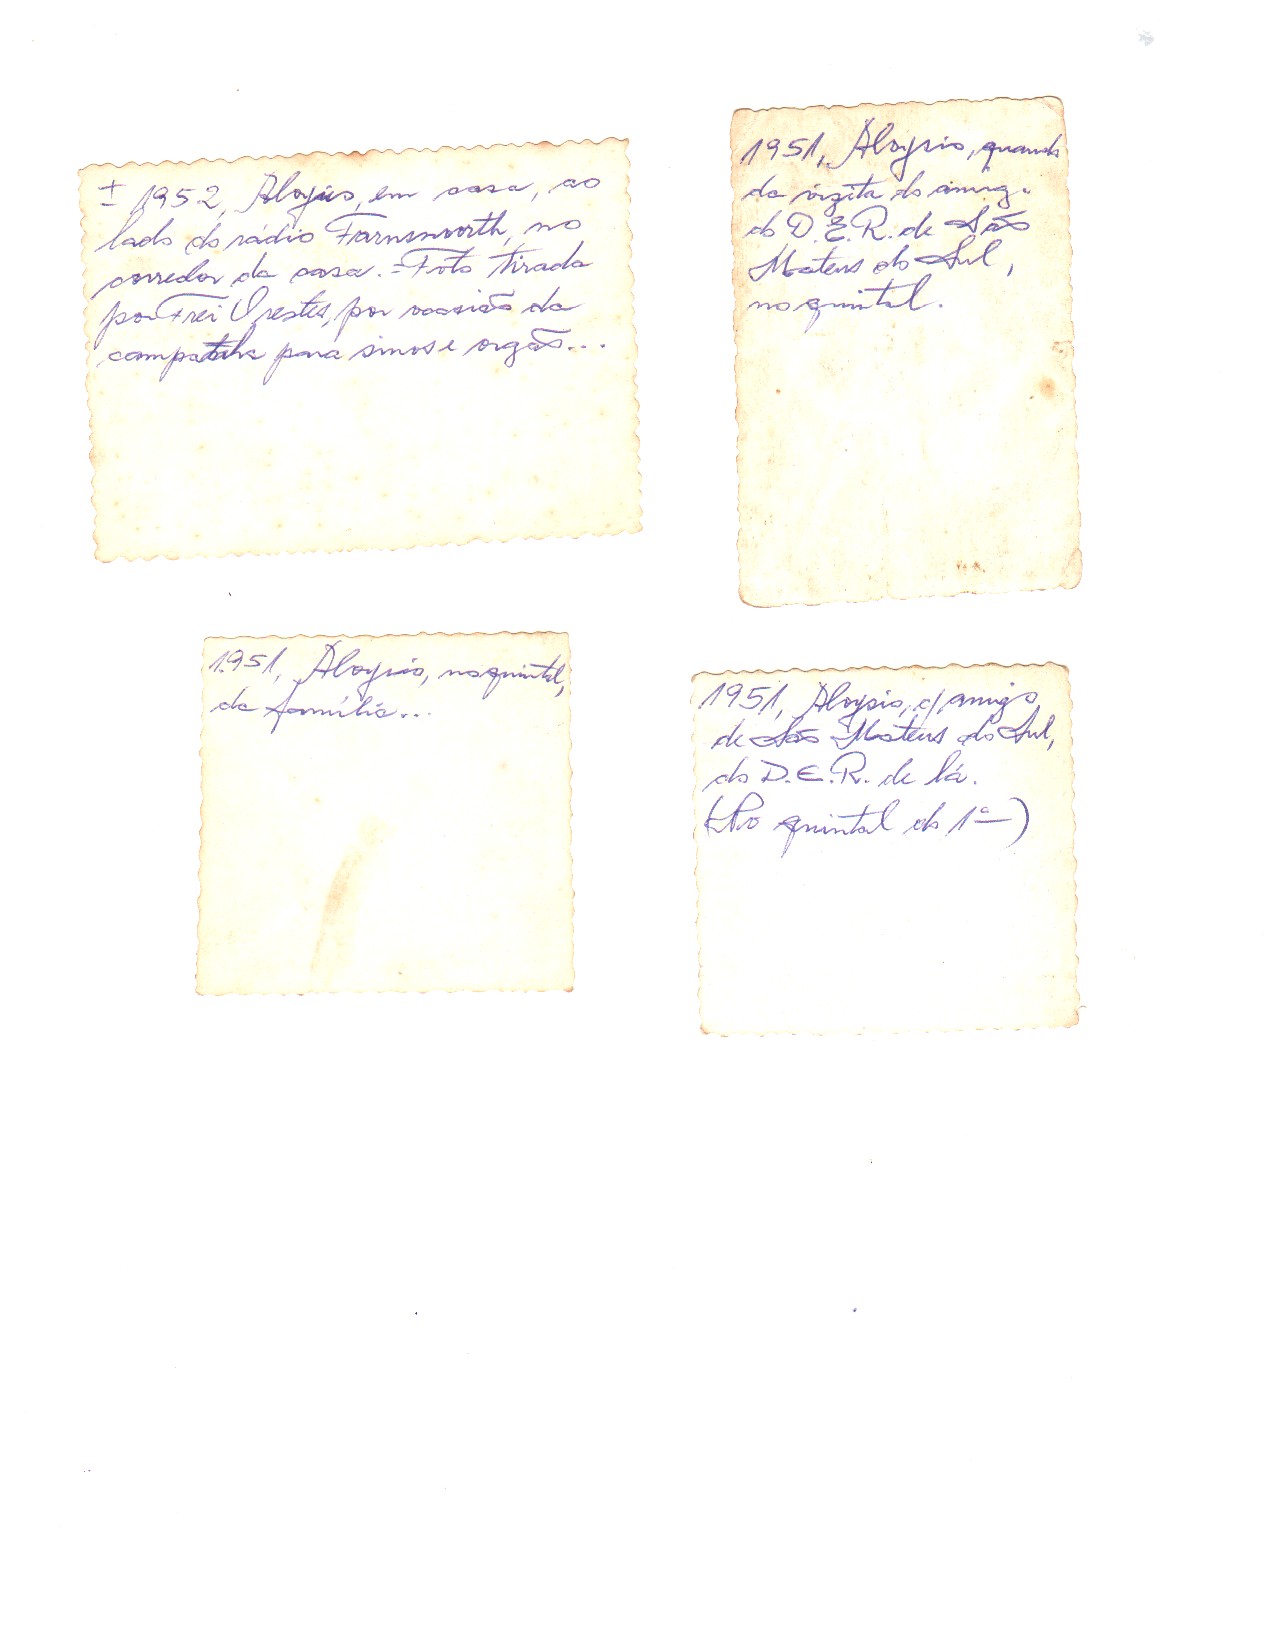 ± 1952, Aloysio, em casa, ao
lado do rádio Farnsworth, no
corredor da casa. = Foto tirada
por Frei Orestes, por ocasião da
campanha para sinos e orgão...
1951, Aloysio, quando
da vizita do amigo
do D.E.R. de São
Mateus do Sul,
no quintal.
1951, Aloysio, no quintal,
da família...
1951, Aloysio, c/ amigo
de São Mateus do Sul,
do D.E.R. de lá.
(No quintal do 1º)